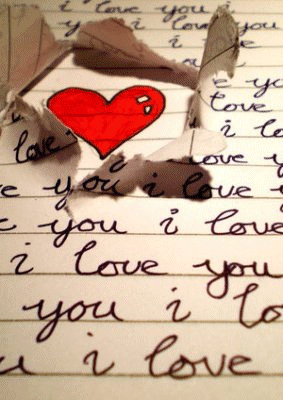 i love you i
i love you
i
e yo
love
i lo
love
love y
e you i love y
e you i love
i love you
you i lo
u i love